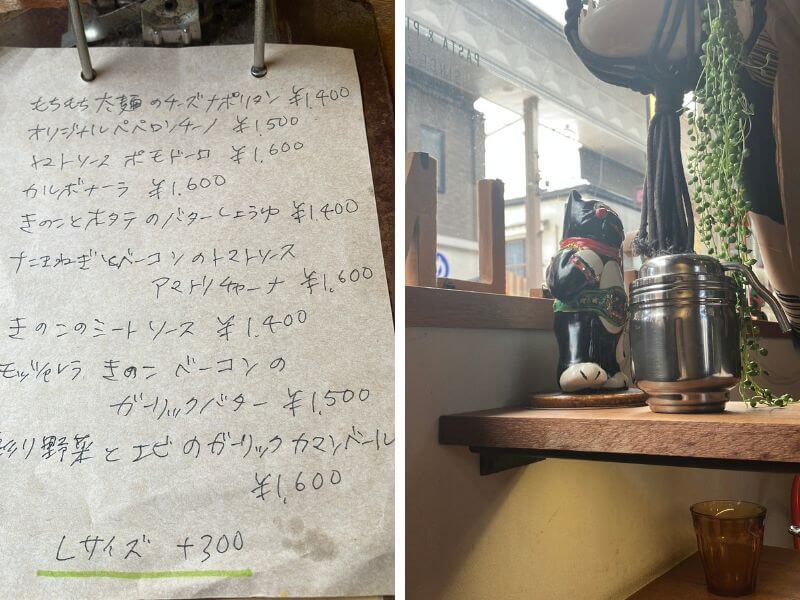 もちもち太麺のチーズナポリタン ¥1,400
オリジナルペペロンチーノ ¥1,500
トマトソース ポモドーロ ¥1,600
カルボナーラ ¥1,600
きのことホタテのバターしょうゆ ¥1,400
たまねぎとベーコンのトマトソース
アマトリチャーナ ¥1,600
きのこのミートソース ¥1,400
モッツァレラ きのこ ベーコンの
ガーリックバター ¥1,500
彩り野菜とエビのガーリックカマンベール
¥1,600
Lサイズ +300
PASTA &